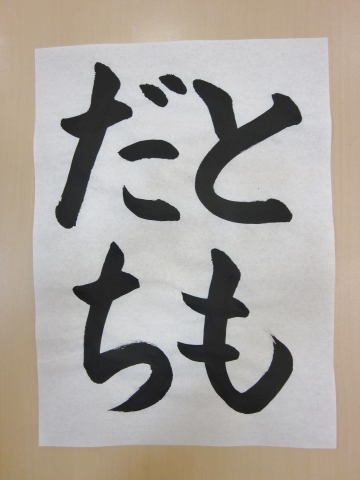 とも
だち